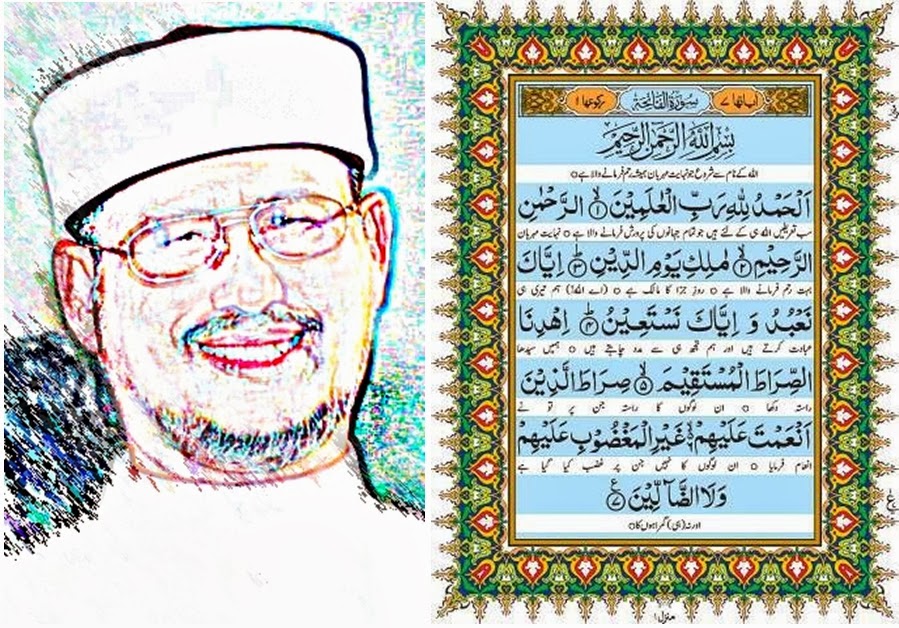 اٰیاتها ۷ سُوْرَةُ الْفَاتِحَةِ رکوعها ۱
بِسْمِ اللّٰهِ الرَّحْمٰنِ الرَّحِیْمِ
اللہ کے نام سے شروع جو نہایت مہربان ہمیشہ رحم فرمانے والا ہے ○
اَلْحَمْدُ لِلّٰهِ رَبِّ الْعٰلَمِیْنَۙ۝۱ الرَّحْمٰنِ
سب تعریفیں اللہ ہی کے لئے ہیں جو تمام جہانوں کی پرورش فرمانے والا ہے ○ نہایت مہربان
الرَّحِیْمِۙ۝۲ مٰلِكِ یَوْمِ الدِّیْنِؕ۝۳ اِیَّاكَ
بہت رحم فرمانے والا ہے ○ روزِ جزا کا مالک ہے ○ (اے اللہ!) ہم تیری ہی
نَعْبُدُ وَ اِیَّاكَ نَسْتَعِیْنُؕ۝۴ اِهْدِنَا
عبادت کرتے ہیں اور ہم تجھ ہی سے مدد چاہتے ہیں ○ ہمیں سیدھا
الصِّرَاطَ الْمُسْتَقِیْمَۙ۝۵ صِرَاطَ الَّذِیْنَ
راستہ دکھا ○ ان لوگوں کا راستہ جن پر تو نے
اَنْعَمْتَ عَلَیْهِمْ۬ۙ۝۶ غَیْرِ الْمَغْضُوْبِ عَلَیْهِمْ
انعام فرمایا ○ ان لوگوں کا نہیں جن پر غضب کیا گیا ہے
وَلَا الضَّآلِّیْنَ۝۷ ع
اور نہ (ہی) گمراہوں کا ○
منزل ۱